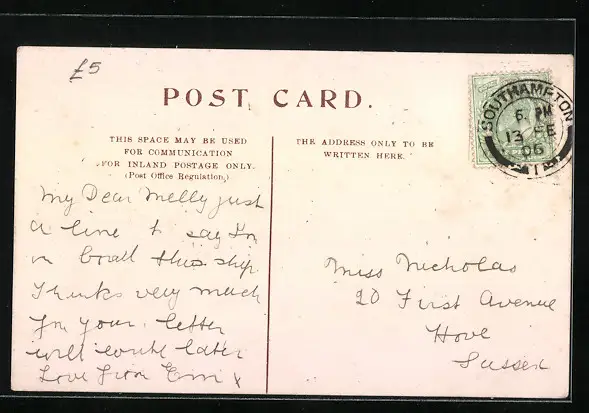 £5
POST CARD.
THIS SPACE MAY BE USED
FOR COMMUNICATION
FOR INLAND POSTAGE ONLY.
(Post Office Regulation.)
THE ADDRESS ONLY TO BE
WRITTEN HERE.
SOUTHAMPTON
6. PM
13 FE
06
My Dear Melly just
a line to say I'm
on board this ship
Thanks very much
for your letter
will write later
Love from Em x
Miss Nicholas
20 First Avenue
Hove
Sussex